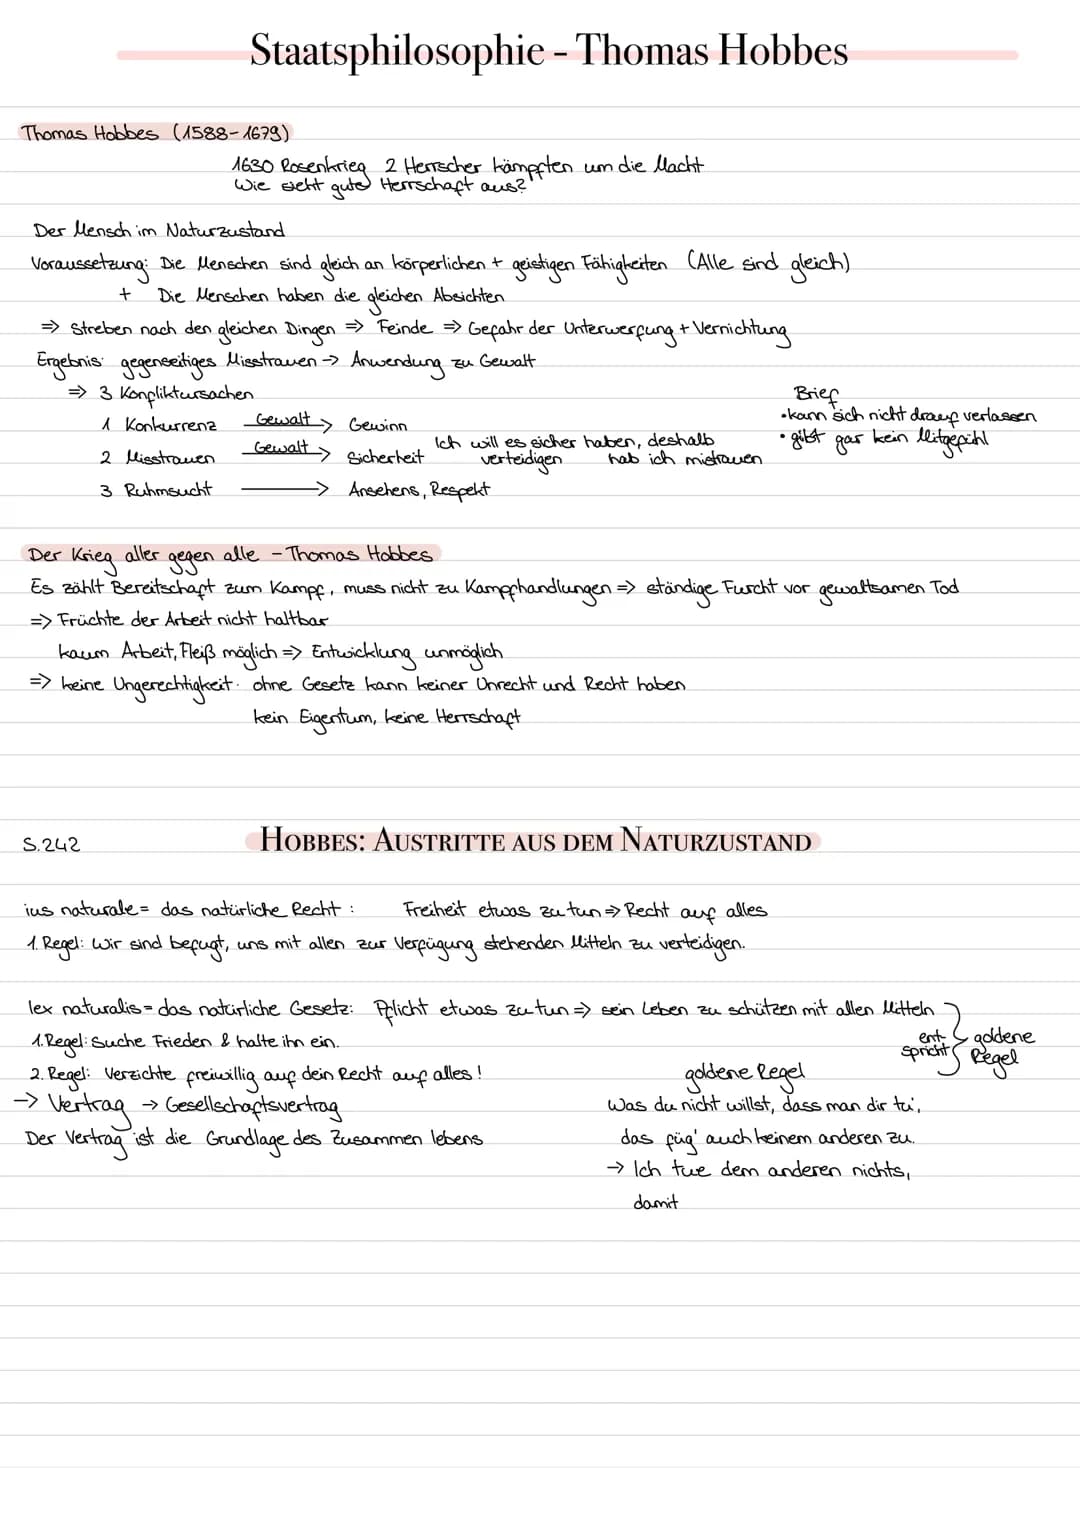 Staatsphilosophie - Thomas Hobbes
Thomas Hobbes (1588-1679)
1630 Rosenkrieg 2 Herrscher kämpften um die Macht
Wie sieht gute Herrschaft aus?
Der Mensch im Naturzustand
Voraussetzung: Die Menschen sind gleich an körperlichen + geistigen Fähigkeiten (Alle sind gleich)
+ Die Menschen haben die gleichen Absichten
=> Streben nach den gleichen Dingen => Feinde => Gefahr der Unterwerfung + Vernichtung
Ergebnis: gegenseitiges Misstrauen -> Anwendung zu Gewalt
=> 3 Konfliktursachen
1 Konkurrenz Gewalt -> Gewinn
2 Misstrauen Gewalt -> Sicherheit
Ich will es sicher haben, deshalb
verteidigen hab ich mistrauen
3 Ruhmsucht -> Ansehens, Respekt
Brief
• kann sich nicht drauf verlassen
• gibt gar kein Mitgefühl
Der Krieg aller gegen alle - Thomas Hobbes
Es zählt Bereitschaft zum Kampf, muss nicht zu Kampfhandlungen => ständige Furcht vor gewaltsamen Tod
=> Früchte der Arbeit nicht haltbar
kaum Arbeit, Fleiß möglich => Entwicklung unmöglich
=> keine Ungerechtigkeit: ohne Gesetz kann keiner Unrecht und Recht haben
kein Eigentum, keine Herrschaft
S.242
HOBBES: AUSTRITTE AUS DEM NATURZUSTAND
ius naturale = das natürliche Recht : Freiheit etwas zu tun => Recht auf alles
1. Regel: Wir sind befugt, uns mit allen zur Verfügung stehenden Mitteln zu verteidigen.
lex naturalis = das natürliche Gesetz: Pflicht etwas zu tun => sein Leben zu schützen mit allen Mitteln
1. Regel: Suche Frieden & halte ihn ein.
2. Regel: Verzichte freiwillig auf dein Recht auf alles!
ent-
spricht
goldene
Regel
-> Vertrag -> Gesellschaftsvertrag
Der Vertrag ist die Grundlage des Zusammen lebens
goldene Regel
Was du nicht willst, dass man dir tu',
das füg' auch keinem anderen zu.
-> Ich tue dem anderen nichts,
damit